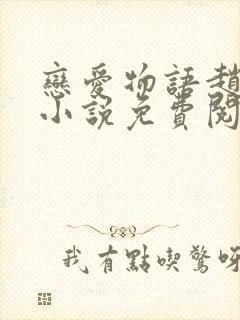 戀愛物語趙
小說免費閱
我有點喫驚呀